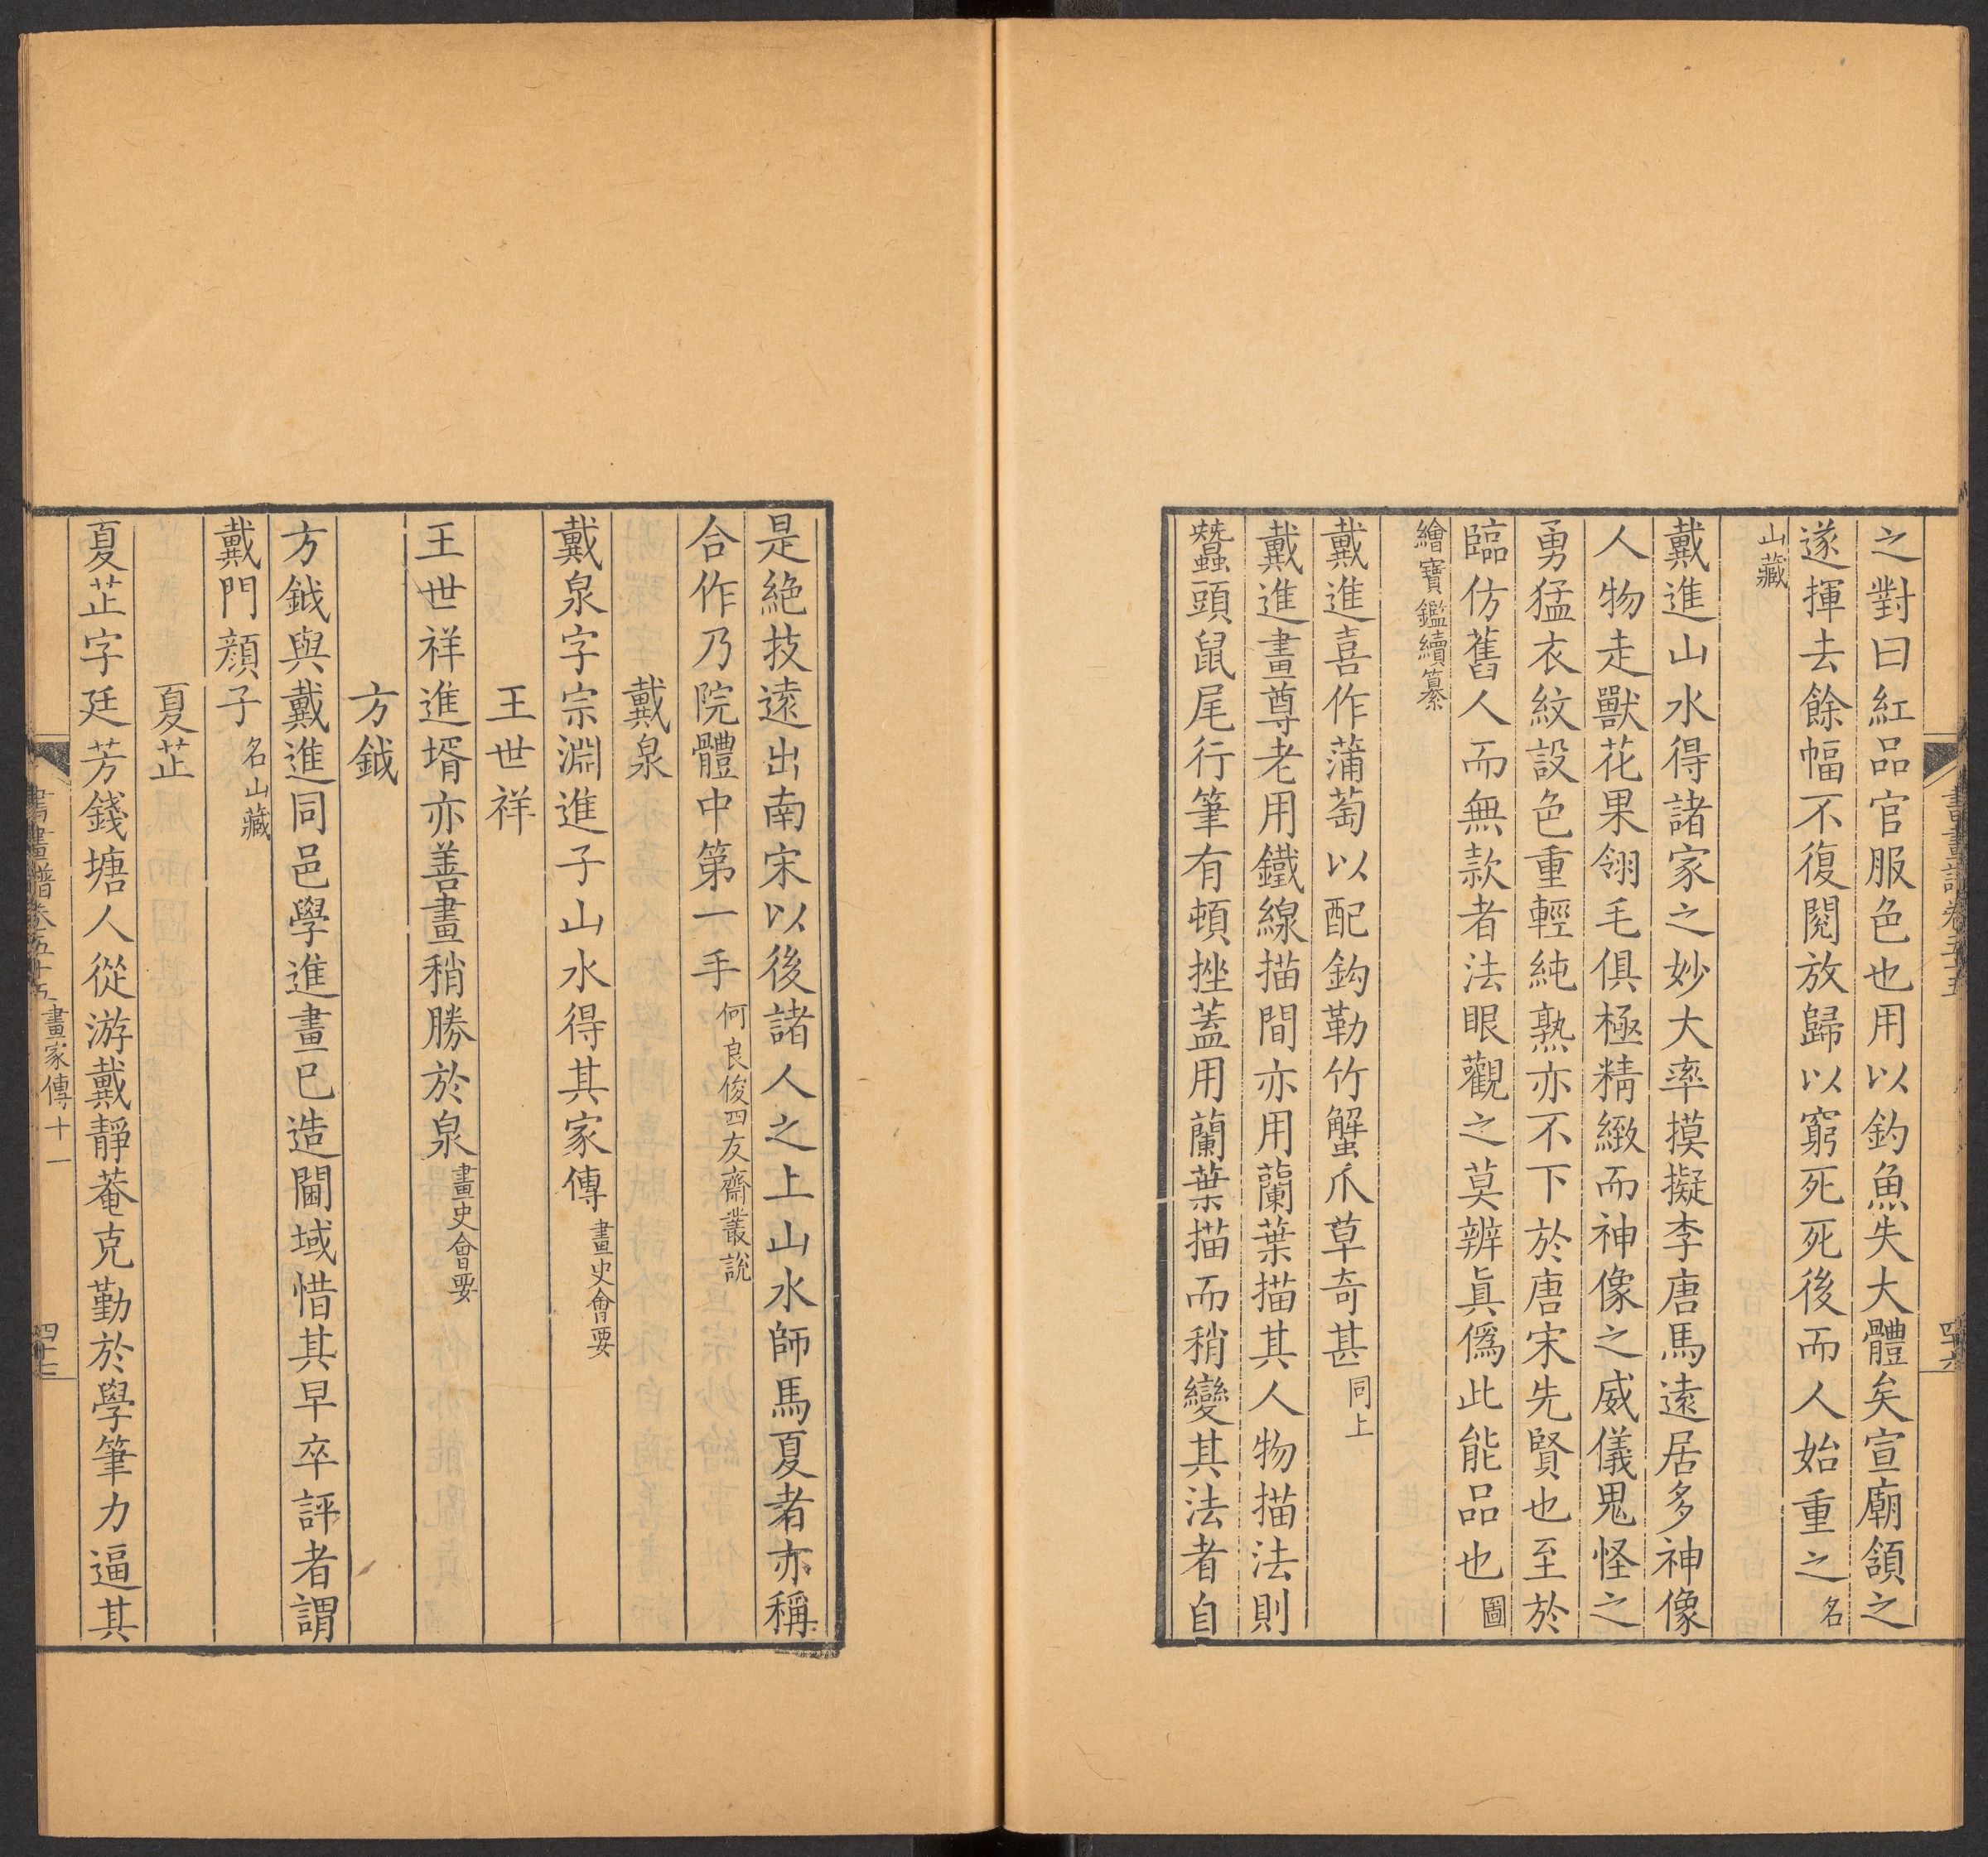 之對曰紅品官服色也用以釣魚失大體矣宣廟頷之
遂揮去餘幅不復閱放歸以窮死死後而人始重之名
山藏
戴進山水得諸家之妙大率摸擬李唐馬遠居多神像
人物走獸花果翎毛俱極精緻而神像之威儀鬼怪之
勇猛衣紋設色重輕純熟亦不下於唐宋先賢也至於
臨仿舊人而無款者法眼觀之莫辨眞僞此能品也圖
繪寶鑑續纂
戴進喜作蒲萄以配鈎勒竹蟹爪草奇甚同上
戴進畫尊老用鐵線描間亦用蘭葉描其人物描法則
蠶頭鼠尾行筆有頓挫蓋用蘭葉描而稍變其法者自
是絶技遠出南宋以後諸人之上山水師馬夏者亦稱
合作乃院體中第一手何良俊四友齋叢說
戴泉
戴泉字宗淵進子山水得其家傳畫史會要
王世祥
王世祥進壻亦善畫稍勝於泉畫史會要
方鉞
方鉞與戴進同邑學進畫已造閫域惜其早卒評者謂
戴門顔子名山藏
夏芷
夏芷字廷芳錢塘人從游戴靜菴克勤於學筆力逼其
書畫譜卷五十五 畫家傳十一